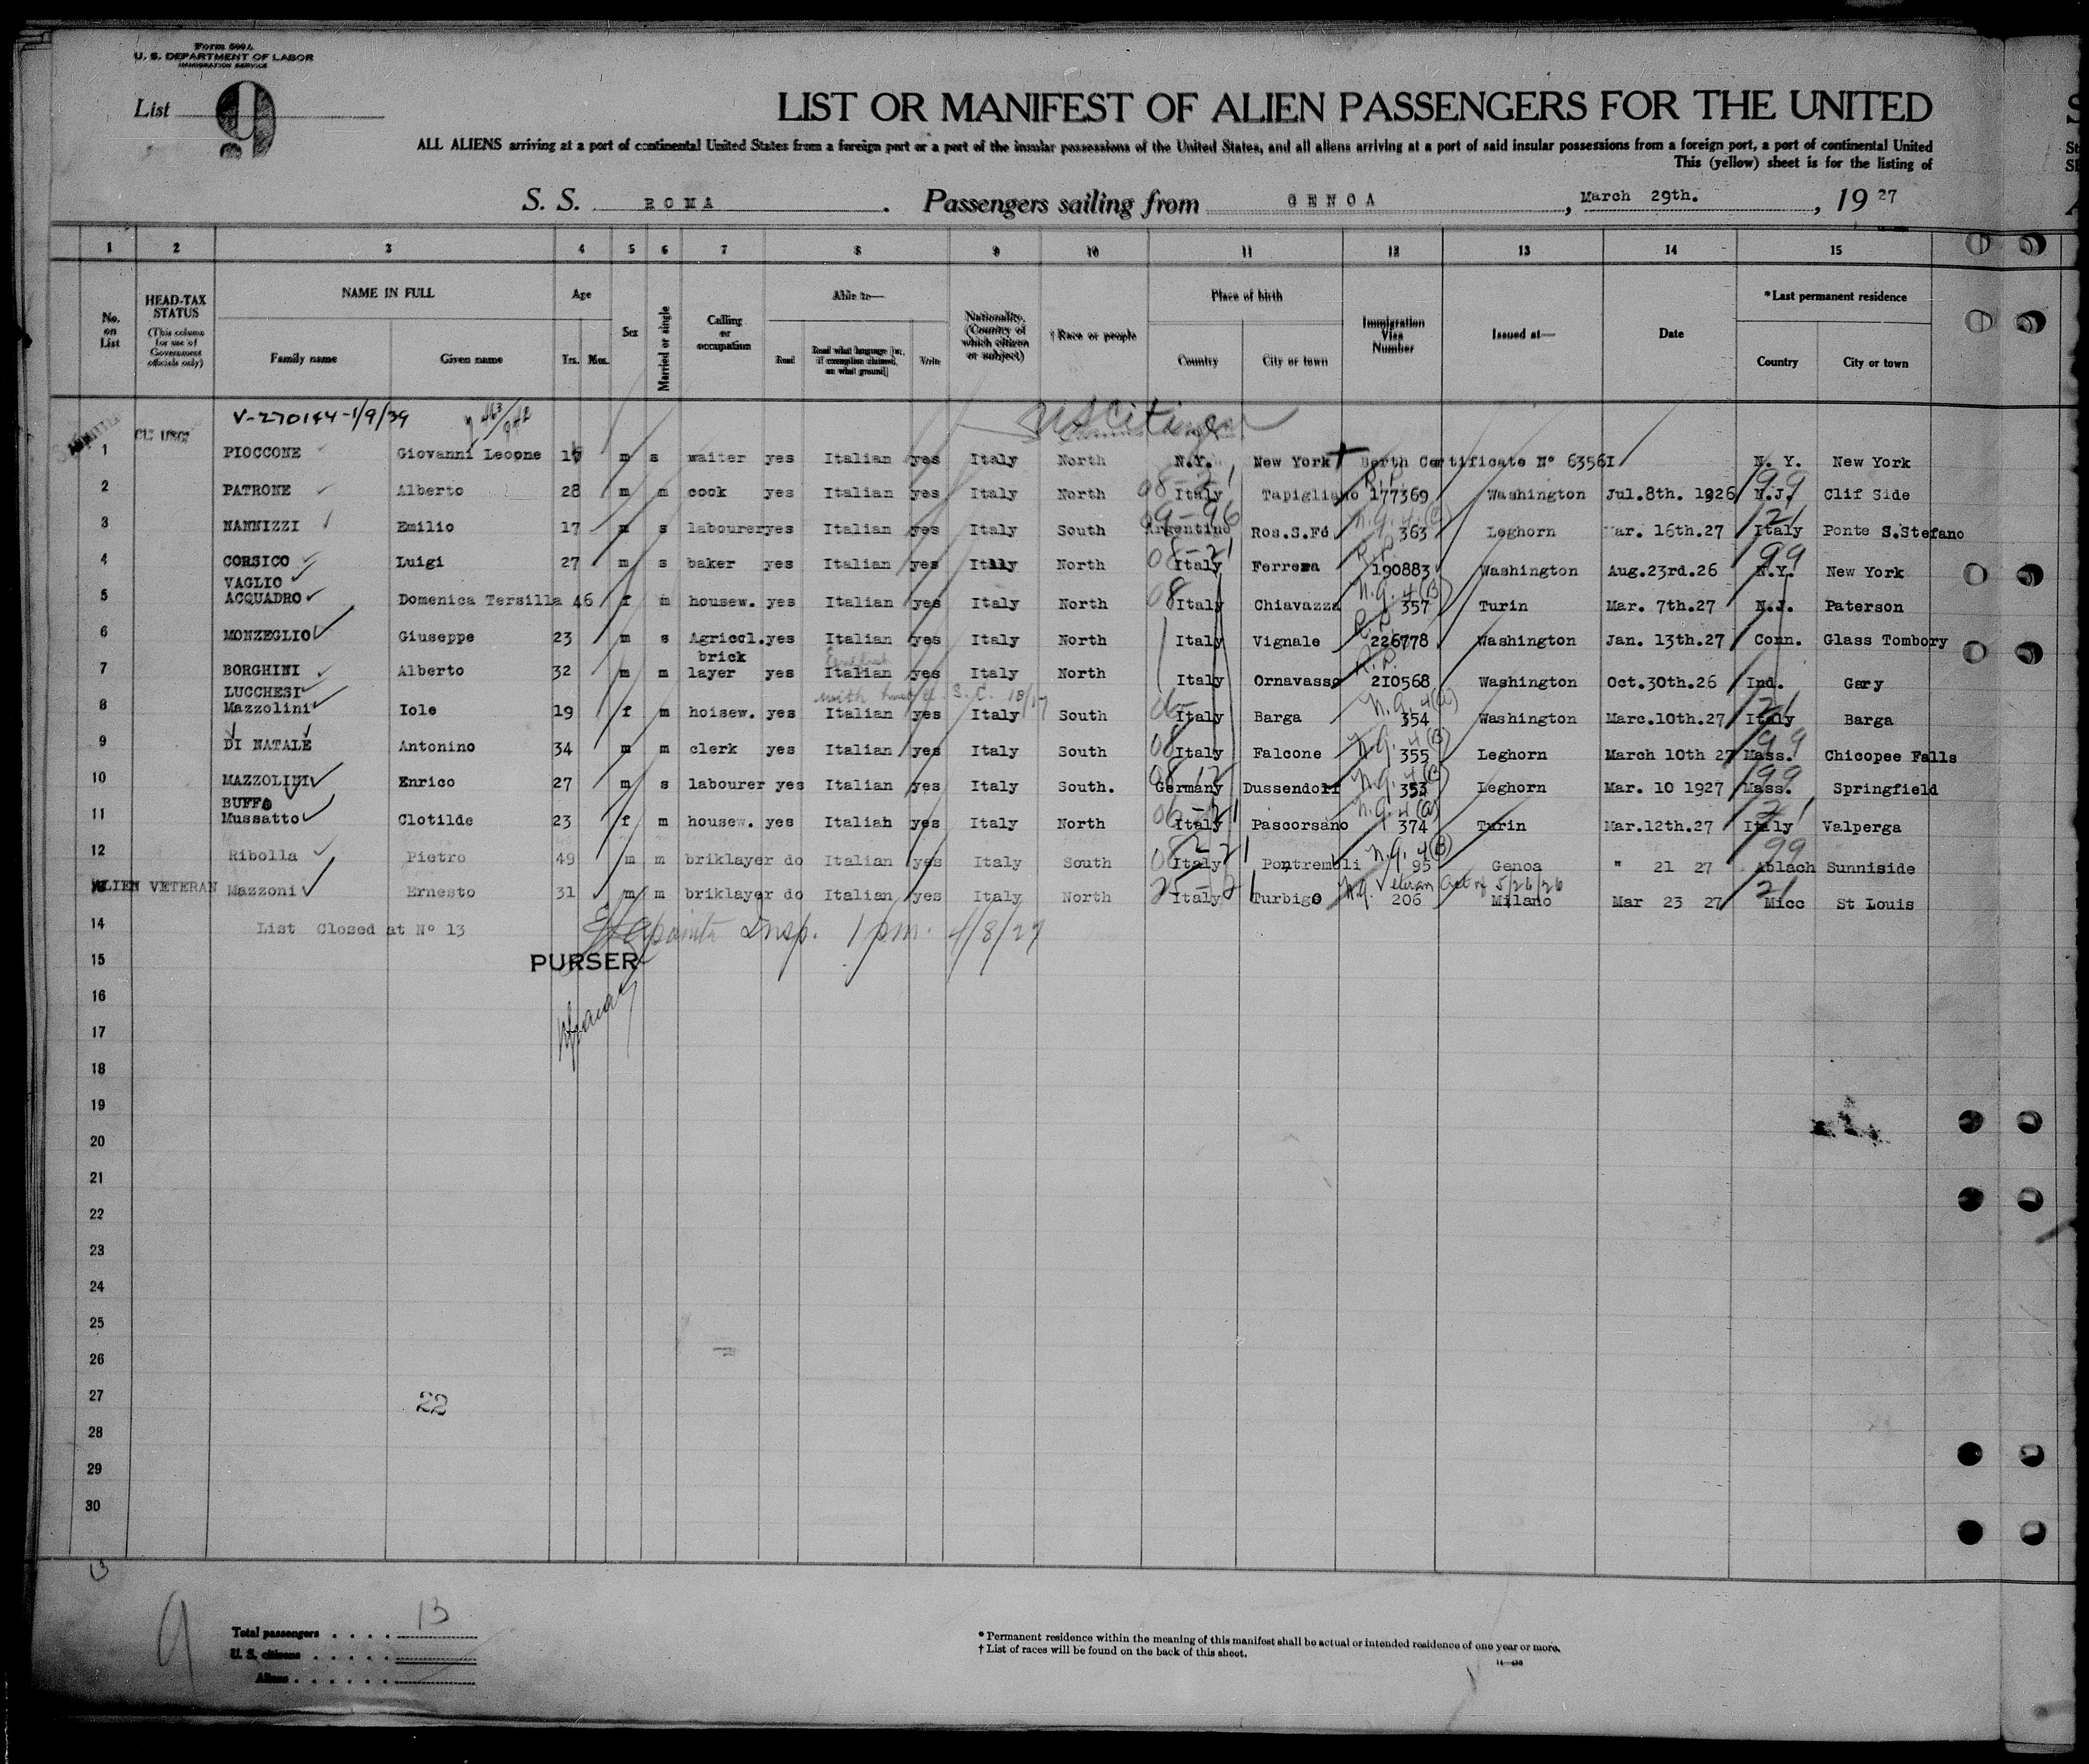 Form 500A
U. S. DEPARTMENT OF LABOR
IMMIGRATION SERVICE
List 9
LIST OR MANIFEST OF ALIEN PASSENGERS FOR THE UNITED
ALL ALIENS arriving at a port of continental United States from a foreign port or a port of the insular possessions of the United States, and all aliens arriving at a port of said insular possessions from a foreign port, a port of continental United
This (yellow) sheet is for the listing of
S. S. ROMA. Passengers sailing from GENOA, March 29th., 19 27
1 2 3 4 5 6 7 8 9 10 11 12 13 14 15
No. on List
HEAD-TAX STATUS (This column for use of Government officials only)
NAME IN FULL Family name Given name
Age Yrs. Mos.
Sex
Married or single
Calling or occupation
Able to— Read Read what language [or, if exemption claimed, on what ground] Write
Nationality. (Country of which citizen or subject)
† Race or people
Place of birth Country City or town
Immigration Visa Number
Issued at—
Date
*Last permanent residence Country City or town
V-270144-1/9/39 US Citizen
1 PIOCCONE Giovanni Leone m s waiter yes Italian yes Italy North N.Y. New York Berth Certificate Nº 6356I N. Y. New York
2 PATRONE Alberto 28 m m cook yes Italian yes Italy North 08-21 Italy Tapigliano R.P. 177369 Washington Jul.8th. 1926 99 N.J. Clif Side
3 NANNIZZI Emilio 17 m s labourer yes Italian yes Italy South 09-96 Argentino Ros.S.Fé N.Q. 4(C) 363 Leghorn Mar. 16th.27 21 Italy Ponte S.Stefano
4 CORSICO Luigi 27 m s baker yes Italian yes Italy North 08-21 Italy Ferrera R.P. 190883 Washington Aug.23rd.26 99 N.Y. New York
VAGLIO
5 ACQUADRO Domenica Tersilla 46 f m housew. yes Italian yes Italy North 08 Italy Chiavazza N.Q. 4(B) 357 Turin Mar. 7th.27 N.J. Paterson
6 MONZEGLIO Giuseppe 23 m s Agricol. yes Italian yes Italy North Italy Vignale R.P. 226778 Washington Jan. 13th.27 Conn. Glass Tombory
7 BORGHINI Alberto 32 m m brick layer yes English Italian yes Italy North Italy Ornavasso R.P. 2I0568 Washington Oct.30th.26 Ind. Gary
LUCCHESI
8 Mazzolini Iole 19 f m hoisew. yes Italian yes Italy South Italy Barga N.Q. 4(A) 354 Washington Marc.10th.27 21 Italy Barga
9 DI NATALE Antonino 34 m m clerk yes Italian yes Italy South 08 Italy Falcone N.Q. 4(B) 355 Leghorn March 10th 27 99 Mass. Chicopee Falls
10 MAZZOLINI Enrico 27 m s labourer yes Italian yes Italy South. 08 12 Germany Dussendorf N.Q. 4(B) 353 Leghorn Mar. 10 1927 99 Mass. Springfield
BUFFO
11 Mussatto Clotilde 23 f m housew. yes Italiah yes Italy North 06-21 Italy Pascorsano N.Q. 4(A) 374 Turin Mar.12th.27 21 Italy Valperga
12 Ribolla Pietro 49 m m briklayer do Italian yes Italy South 08-21 Italy Pontremoli N.Q. 4(B) 95 Genoa " 21 27 99 Ablach Sunniside
ALIEN VETERAN Mazzoni Ernesto 31 m m briklayer do Italian yes Italy North Italy Turbigo N.Q. Veteran Act of 5/26/26 206 Milano Mar 23 27 21 Micc St Louis
14 List Closed at Nº 13 Insp. 1 pm. 4/8/27
15 PURSER
16
17
18
19
20
21
22
23
24
25
26
27 22
28
29
30
13
9
Total passengers 13
U. S. citizens
Aliens
* Permanent residence within the meaning of this manifest shall be actual or intended residence of one year or more.
† List of races will be found on the back of this sheet.